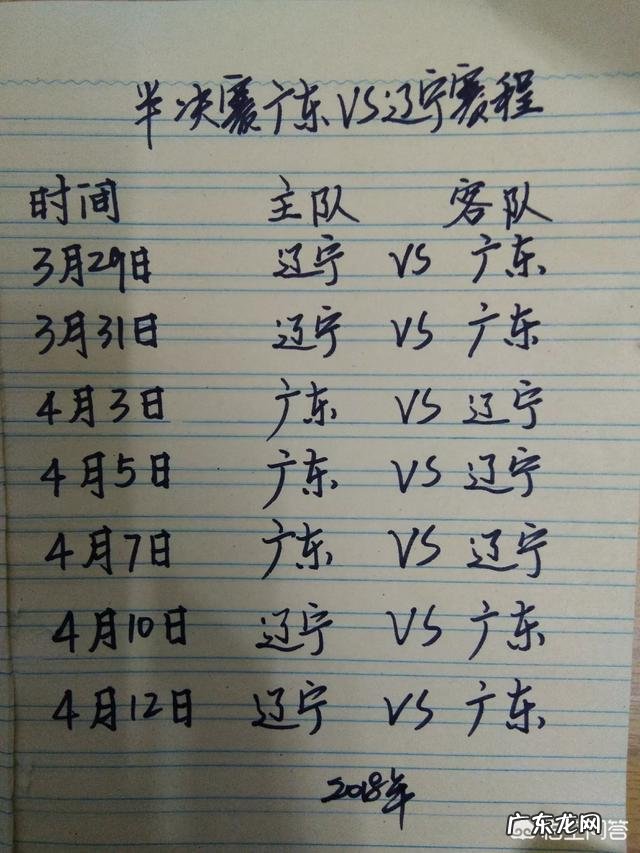 半决赛广东VS辽宁赛程
时间 主队 客队
3月29日 辽宁 VS 广东
3月31日 辽宁 VS 广东
4月3日 广东 VS 辽宁
4月5日 广东 VS 辽宁
4月7日 广东 VS 辽宁
4月10日 辽宁 VS 广东
4月12日 辽宁 VS 广东
2018年
悟空问答
广东龙网